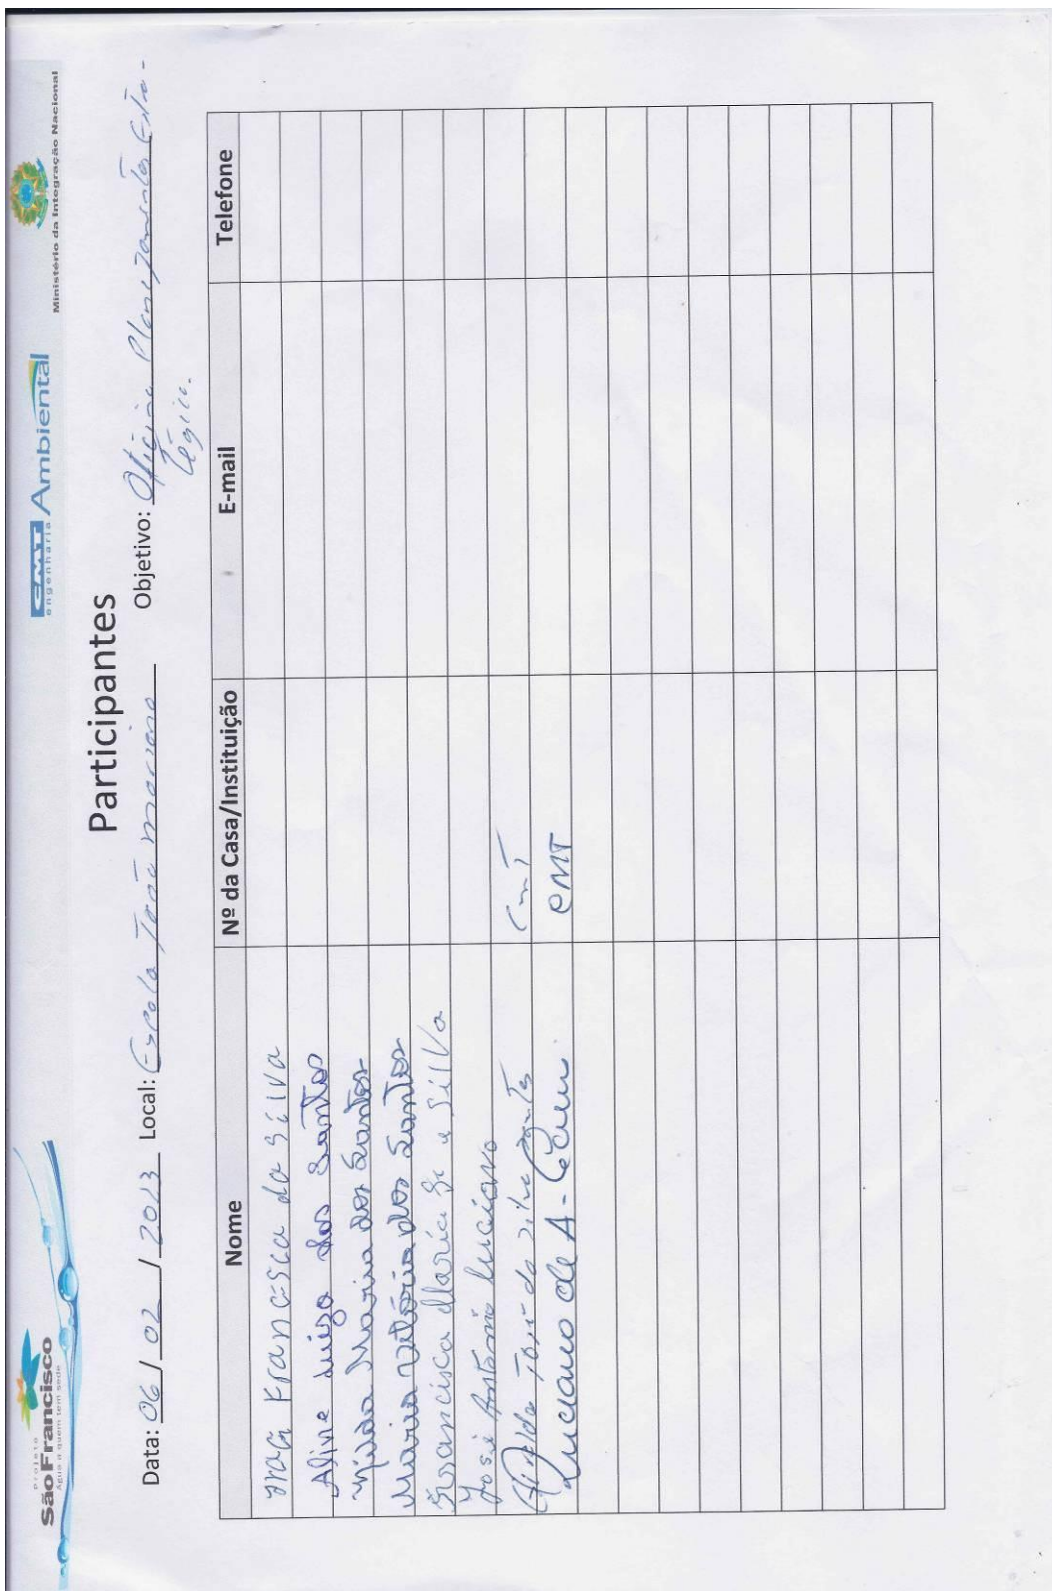 Projeto
São Francisco
Água a quem tem sede
CMT Ambiental
engenharia
Ministério da Integração Nacional
Participantes
Data: 06 / 02 / 2013 Local: Escola João mariano Objetivo: Oficina Planejamento Estra-
tégico.
Nome Nº da Casa/Instituição E-mail Telefone
Francisca da Silva
Aline Luiza dos Santos
Maria dos Santos
Maria Vitória dos Santos
Francisca Maria e Silva
José Antonio Luciano
José da Silva CMT
Luciano de A. CMT